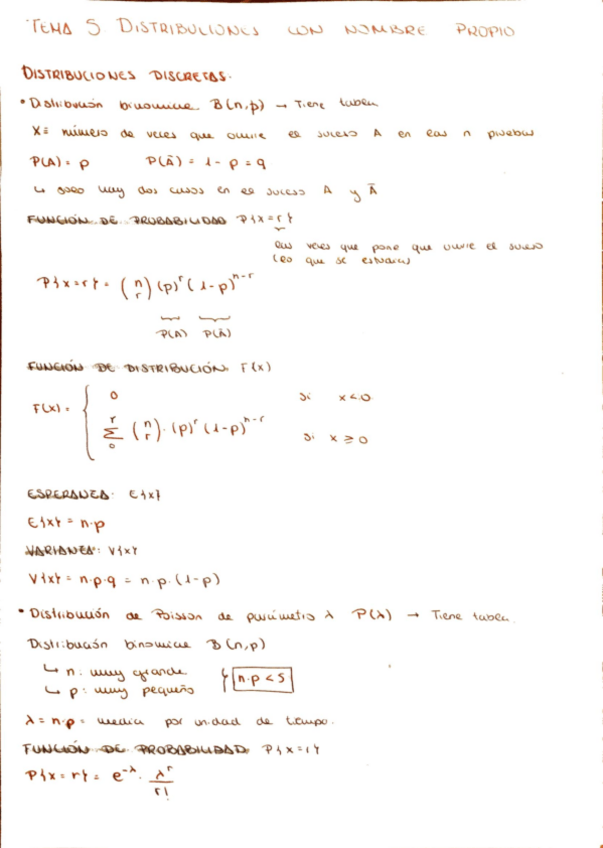 TEMA 5 DISTRIBUCIONES CON NOMBRE PROPIO
DISTRIBUCIONES DISCRETAS.
• Distribución binomial B(n,p) → Tiene tabla
X ≡ número de veces que ocurre el suceso A en las n pruebas
P(A) = p P(Ā) = 1 - p = q
↳ solo hay dos casos en el suceso A y Ā
FUNCIÓN DE PROBABILIDAD P{x=r}
las veces que pone que ocurre el suceso
(lo que se estudia)
P{x=r} = (n r) (p)^r (1-p)^n-r
P(A) P(Ā)
FUNCIÓN DE DISTRIBUCIÓN F(x)
F(x) = { 0 si x<0
∑ r 0 (n r) · (p)^r (1-p)^n-r si x ≥ 0
ESPERANZA: E{x}
E{x} = n·p
VARIANZA: V{x}
V{x} = n·p·q = n·p·(1-p)
• Distribución de Poisson de parámetro λ P(λ) → Tiene tabla.
Distribución binomial B(n,p)
↳ n: muy grande
↳ p: muy pequeño } n·p < 5
λ = n·p = media por unidad de tiempo.
FUNCIÓN DE PROBABILIDAD P{x=r}
P{x=r} = e^-λ · λ^r / r!